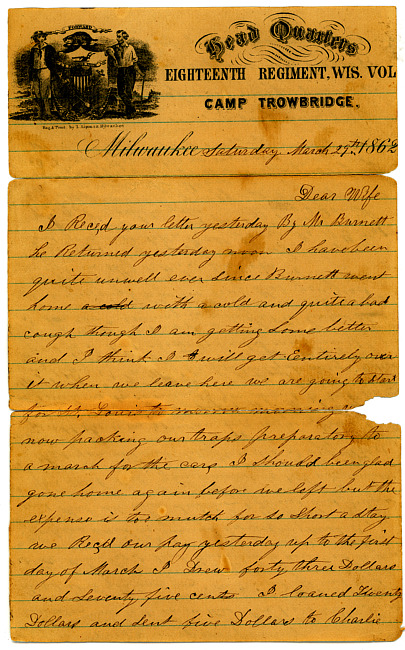 FORWARD
Head Quarters
EIGHTEENTH REGIMENT, WIS. VOL
CAMP TROWBRIDGE,
Milwaukee Saturday March 29th, 1862
Dear Wife
I Rec,d your letter yesterday By Mr Burnett
he Returned yesterday noon I have been
quite unwell ever since Burnett went
home a cold with a cold and quite a bad
cough though I am getting some better
and I think I will get Entirely over
it when we leave here we are going to start
for St Louis to morrow morning
now packing our traps preparatory to
a march for the cars I should been glad
gone home again before we left but the
expense is too mutch for so short a stay
we Rec,d our pay yesterday up to the first
day of March I Drew forty three Dollars
and Seventy five cents I loaned Twenty
Dollars and sent five Dollars to Charlie